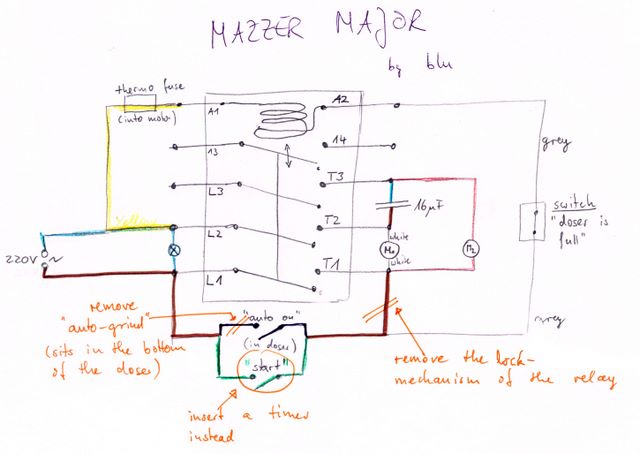 MAZZER MAJOR
by blu
thermo fuse
(into motor)
A1
A2
13
14
grey
L3
T3
16µF
switch
"doser is
full"
yellow
L2
T2
white
220V ~
M1
M2
white
L1
T1
remove
"auto-grind"
(sits in the bottom
of the doser)
"auto on"
(in doser)
grey
"start"
remove the lock-
mechanism of the relay
insert a timer
instead